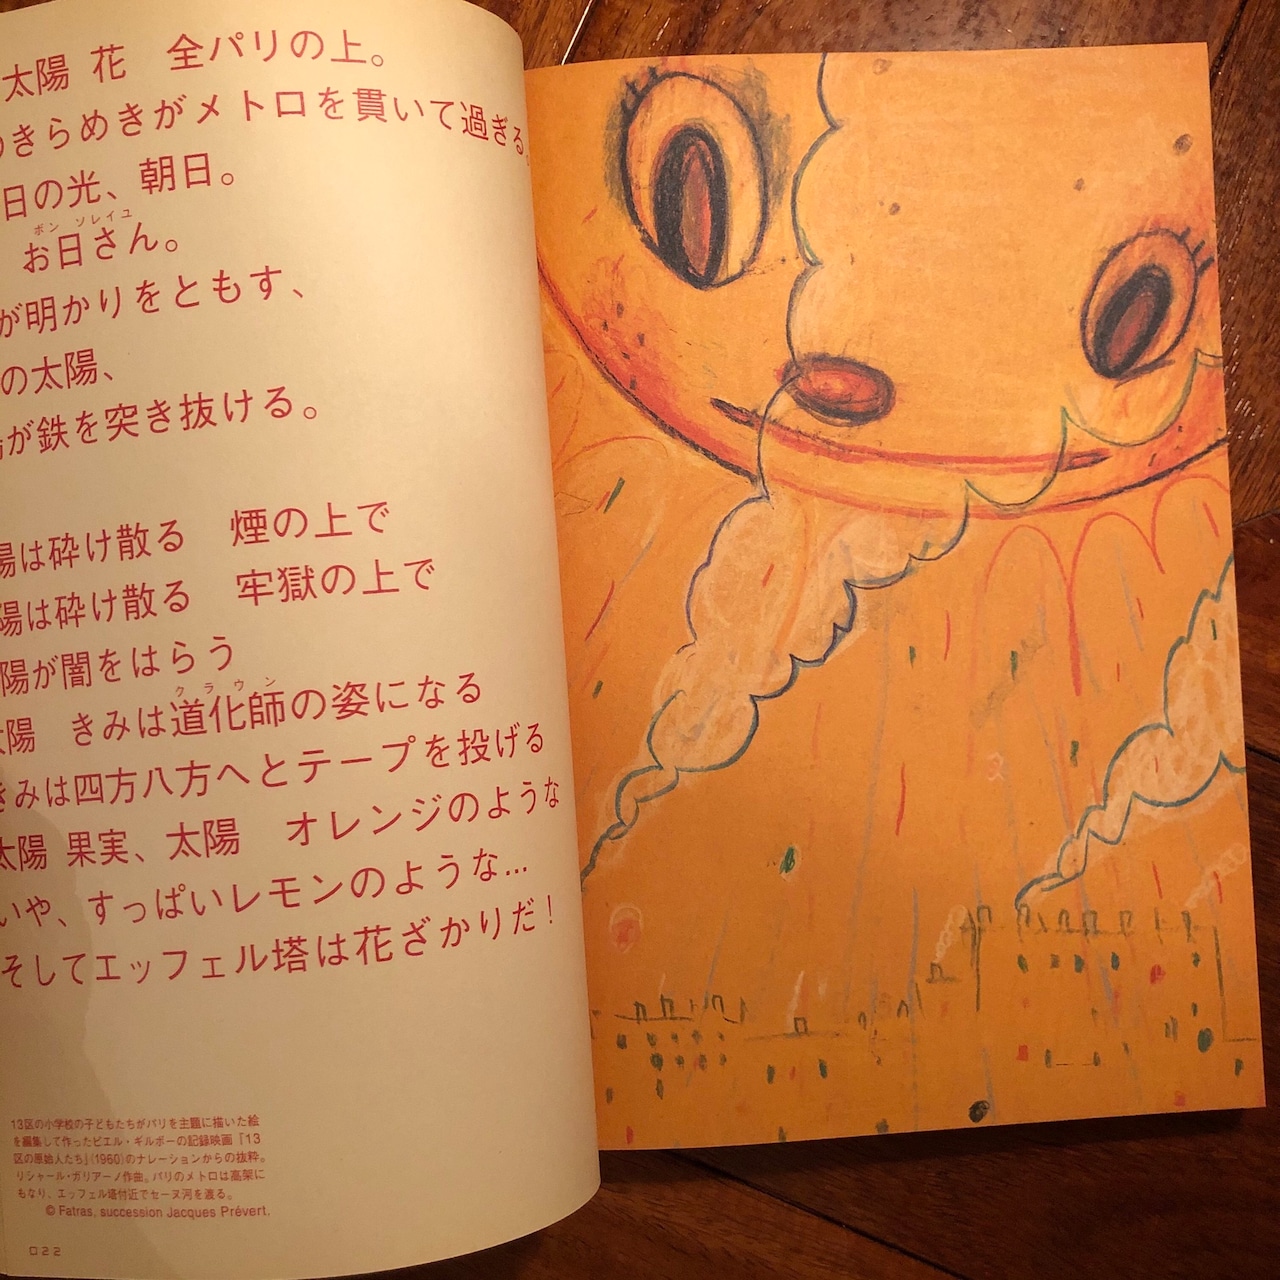 太陽 花 全パリの上。
きらめきがメトロを貫いて過ぎる。
日の光、朝日。
ボン ソレイユ
お日さん。
が明かりをともす、
の太陽、
が鉄を突き抜ける。
陽は砕け散る 煙の上で
陽は砕け散る 牢獄の上で
陽が闇をはらう
クラウン
太陽 きみは道化師の姿になる
きみは四方八方へとテープを投げる
太陽 果実、太陽 オレンジのような
いや、すっぱいレモンのような…
そしてエッフェル塔は花ざかりだ!
13区の小学校の子どもたちがパリを主題に描いた絵
を編集して作ったピエル・ギルボーの記録映画『13
区の原始人たち』(1960)のナレーションからの抜粋。
リシャール・ガリアーノ作曲。パリのメトロは高架に
もなり、エッフェル塔付近でセーヌ河を渡る。
© Fatras, succession Jacques Prévert.
022